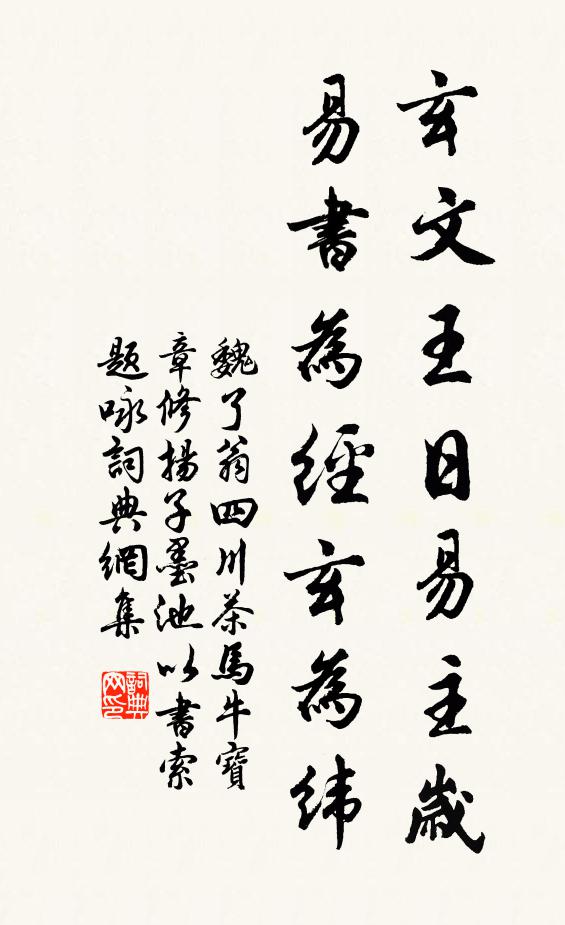 玄文王日易主歲
易書為經玄為緯
魏了翁四川茶馬牛寶
章修揚子墨池以書索
題咏詞典網集
詞典网印